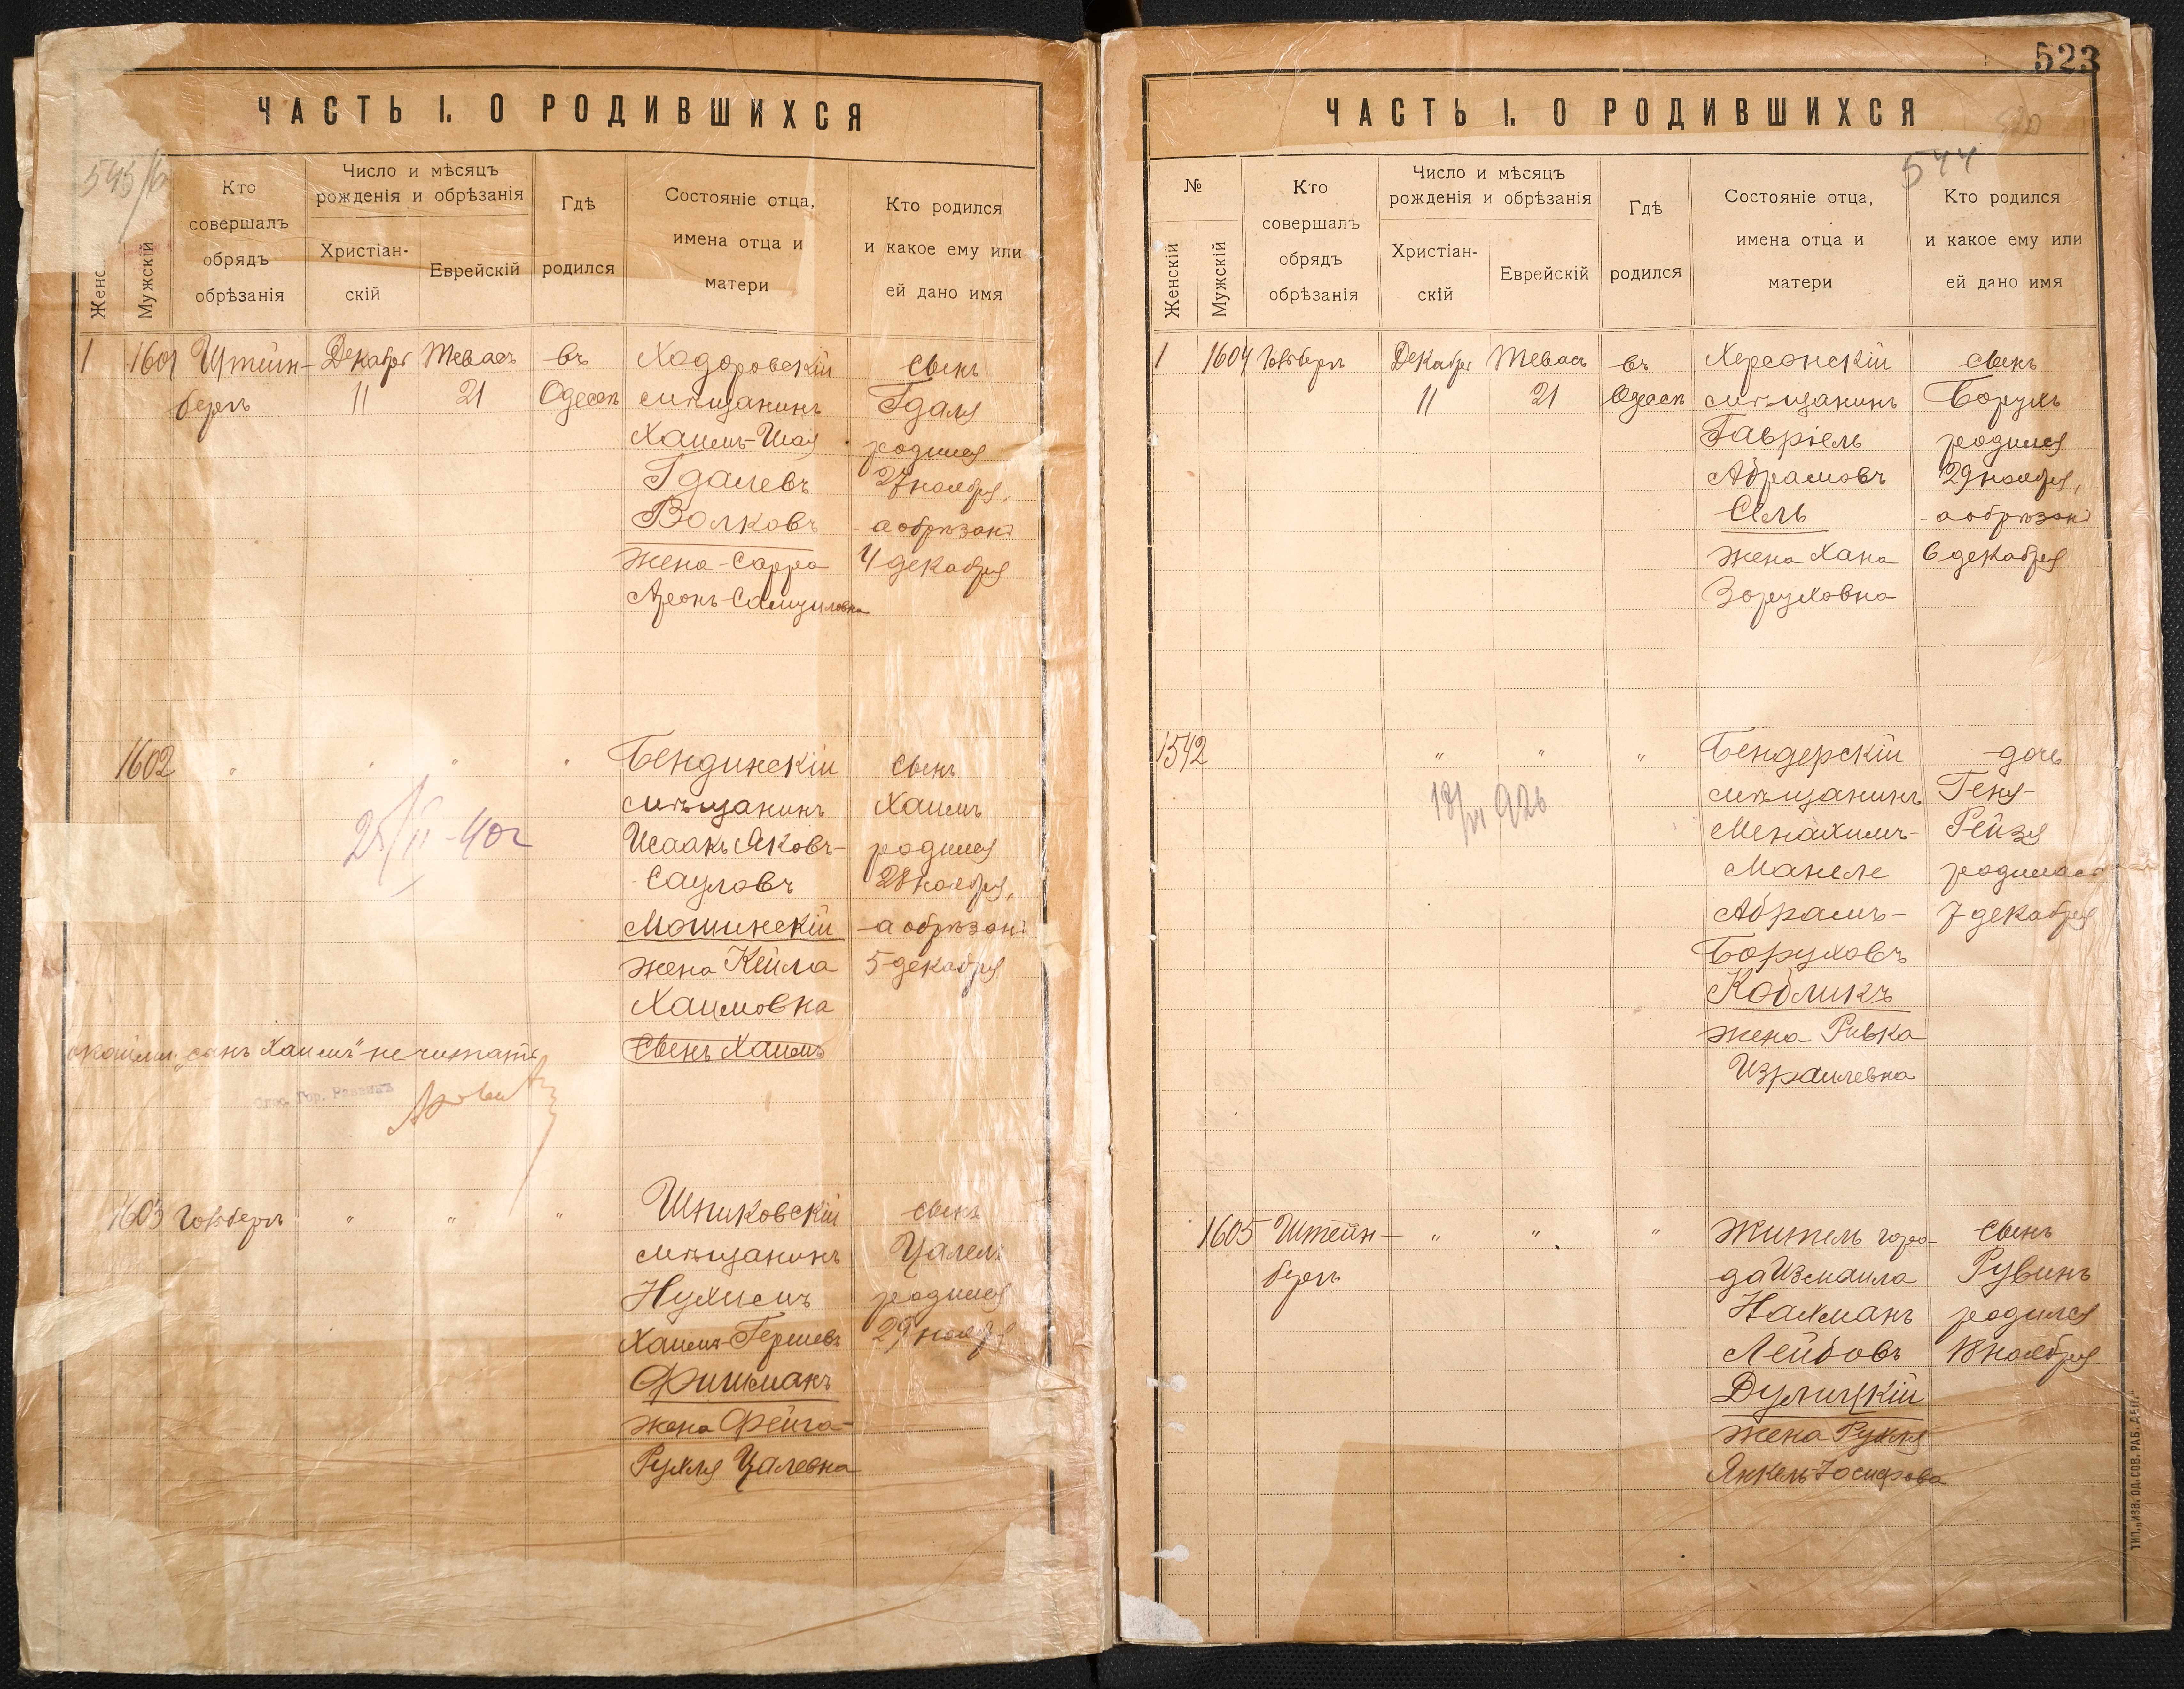 ЧАСТЬ I. О РОДИВШИХСЯ
543/б
Женс
Мужскій
Кто
совершалъ
обрядъ
обрѣзанія
Число и мѣсяцъ
рожденія и обрѣзанія
Христіан-
скій
Еврейскій
Гдѣ
родился
Состояніе отца,
имена отца и
матери
Кто родился
и какое ему или
ей дано имя
1 1601 Штейн- Декабря Тевасъ въ Ходоровскій сынъ
бергъ 11 21 Одессѣ мѣщанинъ Гдаля
Хаимъ-Шая родился
Гдалевъ 27 ноября,
Волковъ а обрѣзанъ
жена Сарра 4 декабря
Аронъ-Самуиловна
1602 " " " " Бендинскій сынъ
мѣщанинъ Хаимъ
Исаакъ Яковъ- родился
Сауловъ 28 ноября,
Мошинскій а обрѣзанъ
жена Кейла 5 декабря
Хаимовна
сынъ Хаимъ
25/II-40г
„сынъ Хаимъ" не читать
Гор. Раввинъ
1603 " " " мѣщанинъ сынъ
Нухимъ Цалель
Хаимъ-Гершевъ родился
Фишманъ 29 ноября
жена Фейга-
Рухля Цалевна
523
ЧАСТЬ I. О РОДИВШИХСЯ
544
№
Женскій
Мужскій
Кто
совершалъ
обрядъ
обрѣзанія
Число и мѣсяцъ
рожденія и обрѣзанія
Христіан-
скій
Еврейскій
Гдѣ
родился
Состояніе отца,
имена отца и
матери
Кто родился
и какое ему или
ей дано имя
1 1604 Декабря Тевасъ въ Херсонскій сынъ
11 21 Одессѣ мѣщанинъ Борухъ
Гавріель родился
Абрамовъ 29 ноября,
Сель а обрѣзанъ
жена Хана 6 декабря
Зоруховна
1542 " " " Бендерскій дочь
мѣщанинъ Геня-
Менахимъ- Рейзя
Манеле родилась
Абрамъ- 7 декабря
Боруховъ
Кобликъ
жена Ривка
Израилевна
1605 Штейн- " " " Житель горо- сынъ
бергъ да Измаила Рувинъ
Нахманъ родился
Лейбовъ 18 ноября
Дулицкій
жена Рухля
Янкель-Іосифова
ТИП. „ИЗВ. ОД. СОВ. РАБ. ДЕП."